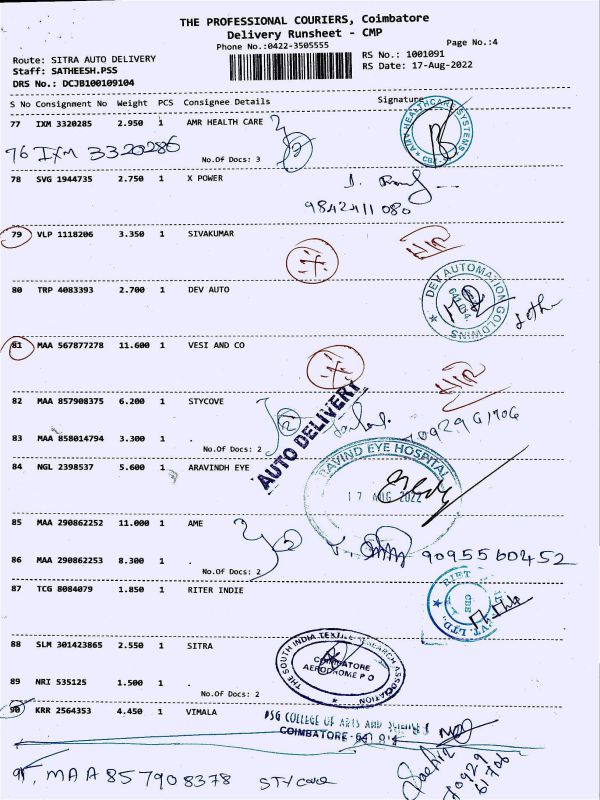 THE PROFESSIONAL COURIERS, Coimbatore
Delivery Runsheet - CMP
Phone No.:0422-3505555
Page No.:4
Route: SITRA AUTO DELIVERY
RS No.: 1001091
Staff: SATHEESH.PSS
RS Date: 17-Aug-2022
DRS No.: DCJB100109104
S No Consignment No Weight PCS Consignee Details Signature
77 IXM 3320285 2.950 1 AMR HEALTH CARE
AMR HEALTHCARE SYSTEMS
CBE
76 IXM 3320286
No.Of Docs: 3
78 SVG 1944735 2.750 1 X POWER
9842411080
79 VLP 1118206 3.350 1 SIVAKUMAR
80 TRP 4083393 2.700 1 DEV AUTO
DEV AUTOMATION GOLDWINS
641 014
81 MAA 567877278 11.600 1 VESI AND CO
82 MAA 857908375 6.200 1 STYCOVE
2
AUTO DELIVERY
70929 61706
83 MAA 858014794 3.300 1 .
No.Of Docs: 2
84 NGL 2398537 5.600 1 ARAVINDH EYE
RAVIND EYE HOSPITAL
17 AUG 2022
85 MAA 290862252 11.000 1 AME
2
9095560452
86 MAA 290862253 8.300 1 .
No.Of Docs: 2
87 TCG 8084079 1.850 1 RITER INDIE
CBE
VT. LTD.
88 SLM 301423865 2.550 1 SITRA
THE SOUTH INDIA TEXTILE RESEARCH ASSOCIATION
COIMBATORE
AERODROME P O
89 NRI 535125 1.500 1 .
No.Of Docs: 2
90 KRR 2564353 4.450 1 VIMALA
PSG COLLEGE OF ARTS AND SCIENCE
COIMBATORE-641
91, MAA 857908378 STYCOVE
70929
61706